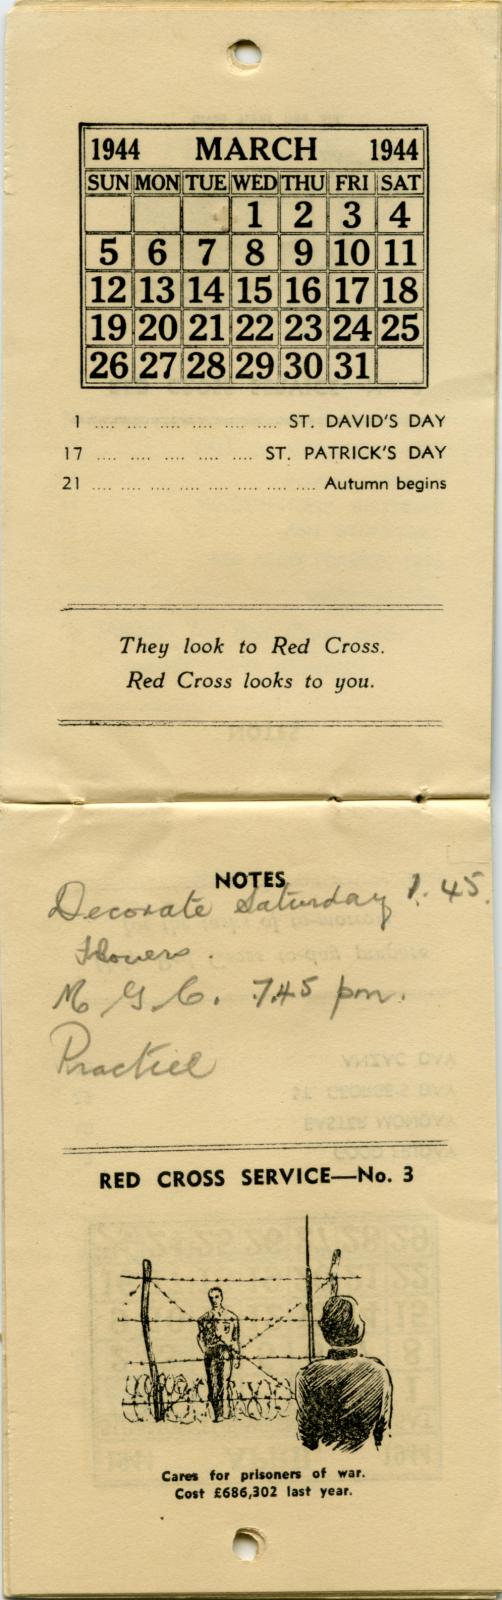 1944 MARCH 1944
SUN MON TUE WED THU FRI SAT
1 2 3 4
5 6 7 8 9 10 11
12 13 14 15 16 17 18
19 20 21 22 23 24 25
26 27 28 29 30 31
1 .... .... .... .... .... .... ST. DAVID'S DAY
17 .... .... .... .... .... ST. PATRICK'S DAY
21 .... .... .... .... .... .... .... Autumn begins
They look to Red Cross.
Red Cross looks to you.
NOTES
Decorate Saturday 1.45.
Flowers.
M G C. 7.45 pm.
Practice
RED CROSS SERVICE—No. 3
Cares for prisoners of war.
Cost £686,302 last year.